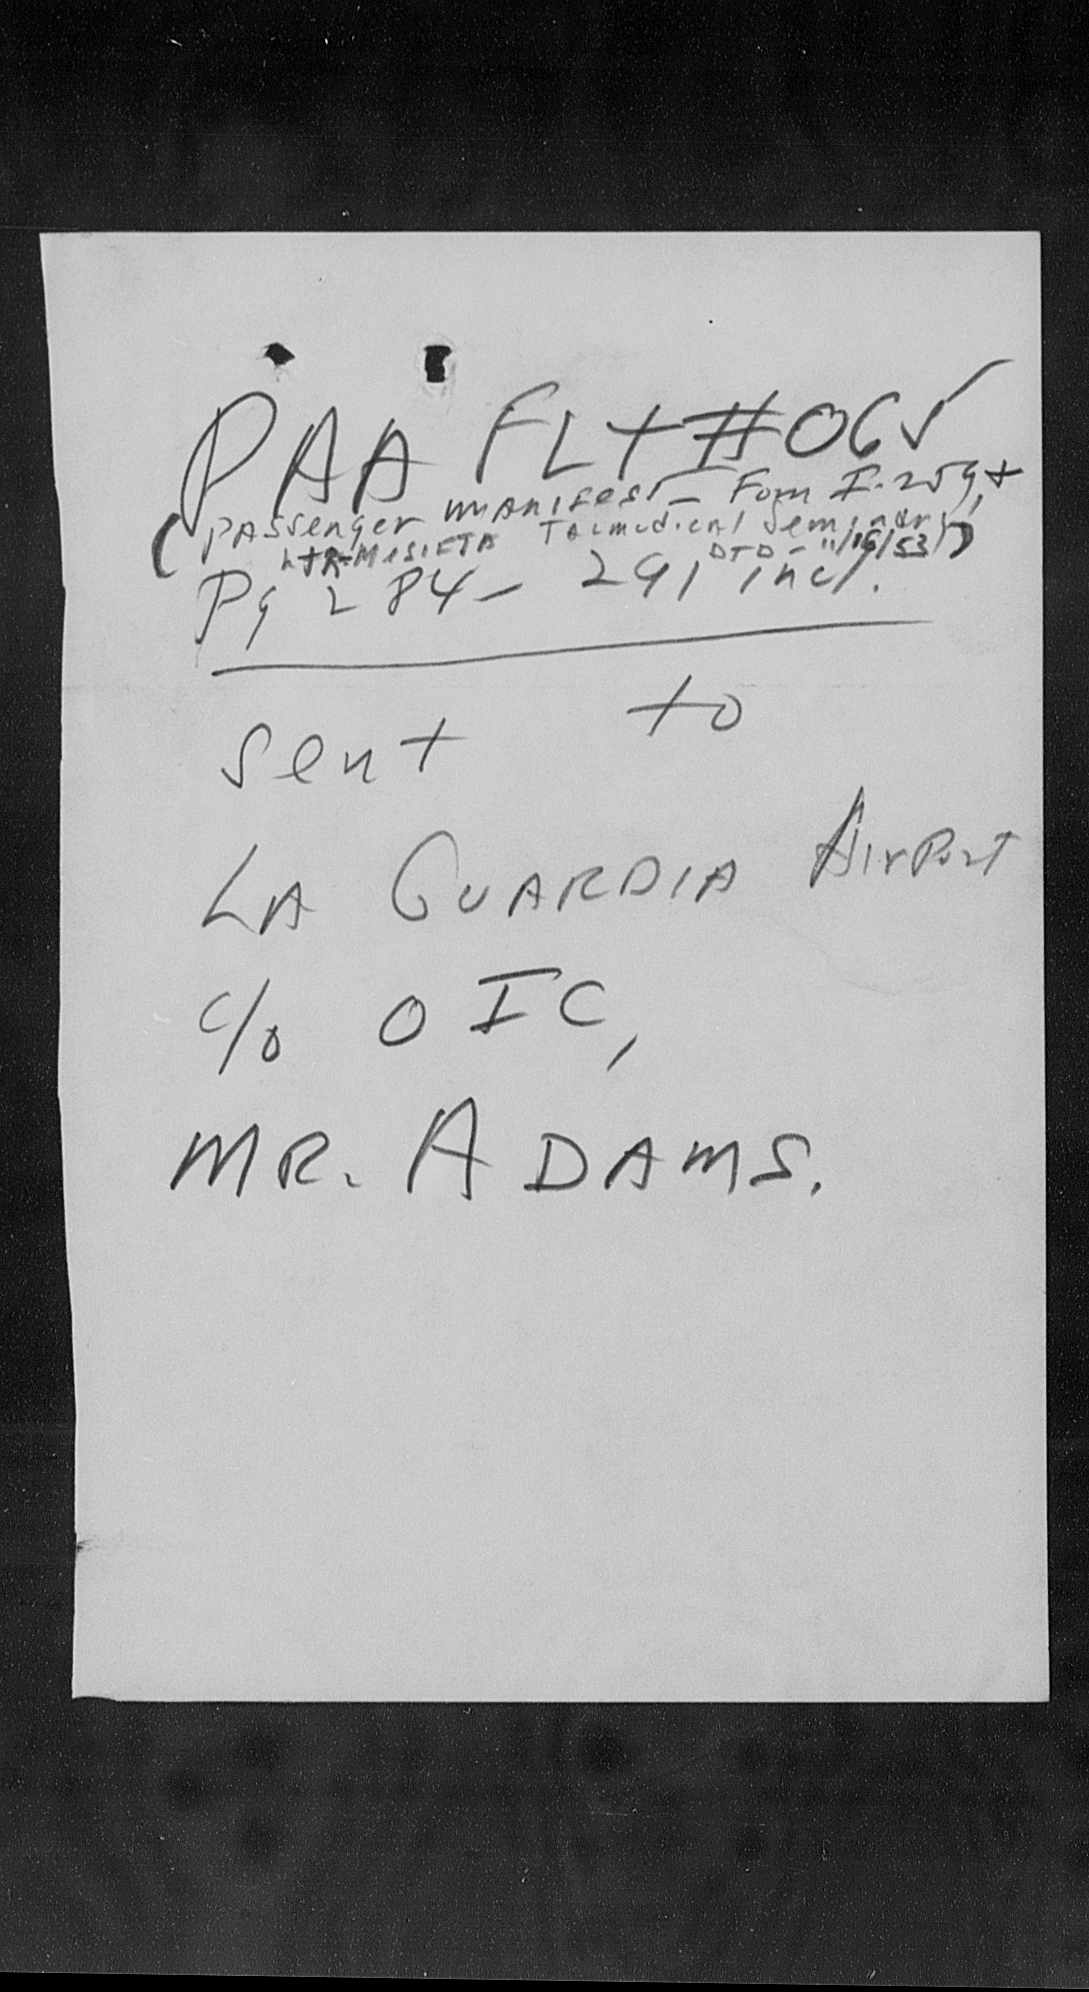 PAA FLT #065
(Passenger manifest - Form I-259, +
Ltr-Mesifta Talmudical Seminary
DTD- 11/16/53)
Pg 284 - 291 incl.
sent to
LA GUARDIA AIRPORT
c/o OIC,
MR. ADAMS.